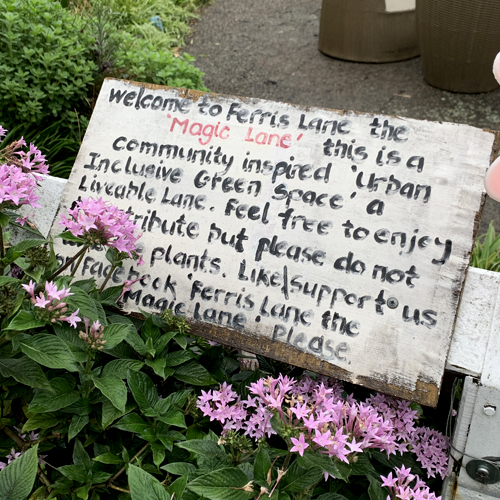 Welcome to Ferris Lane the
'Magic Lane' this is a
community inspired 'Urban
Inclusive Green Space' a
Liveable Lane. Feel free to enjoy
tribute but please do not
plants. Like/support to us
on Facebook 'Ferris Lane the
Magic Lane' Please.